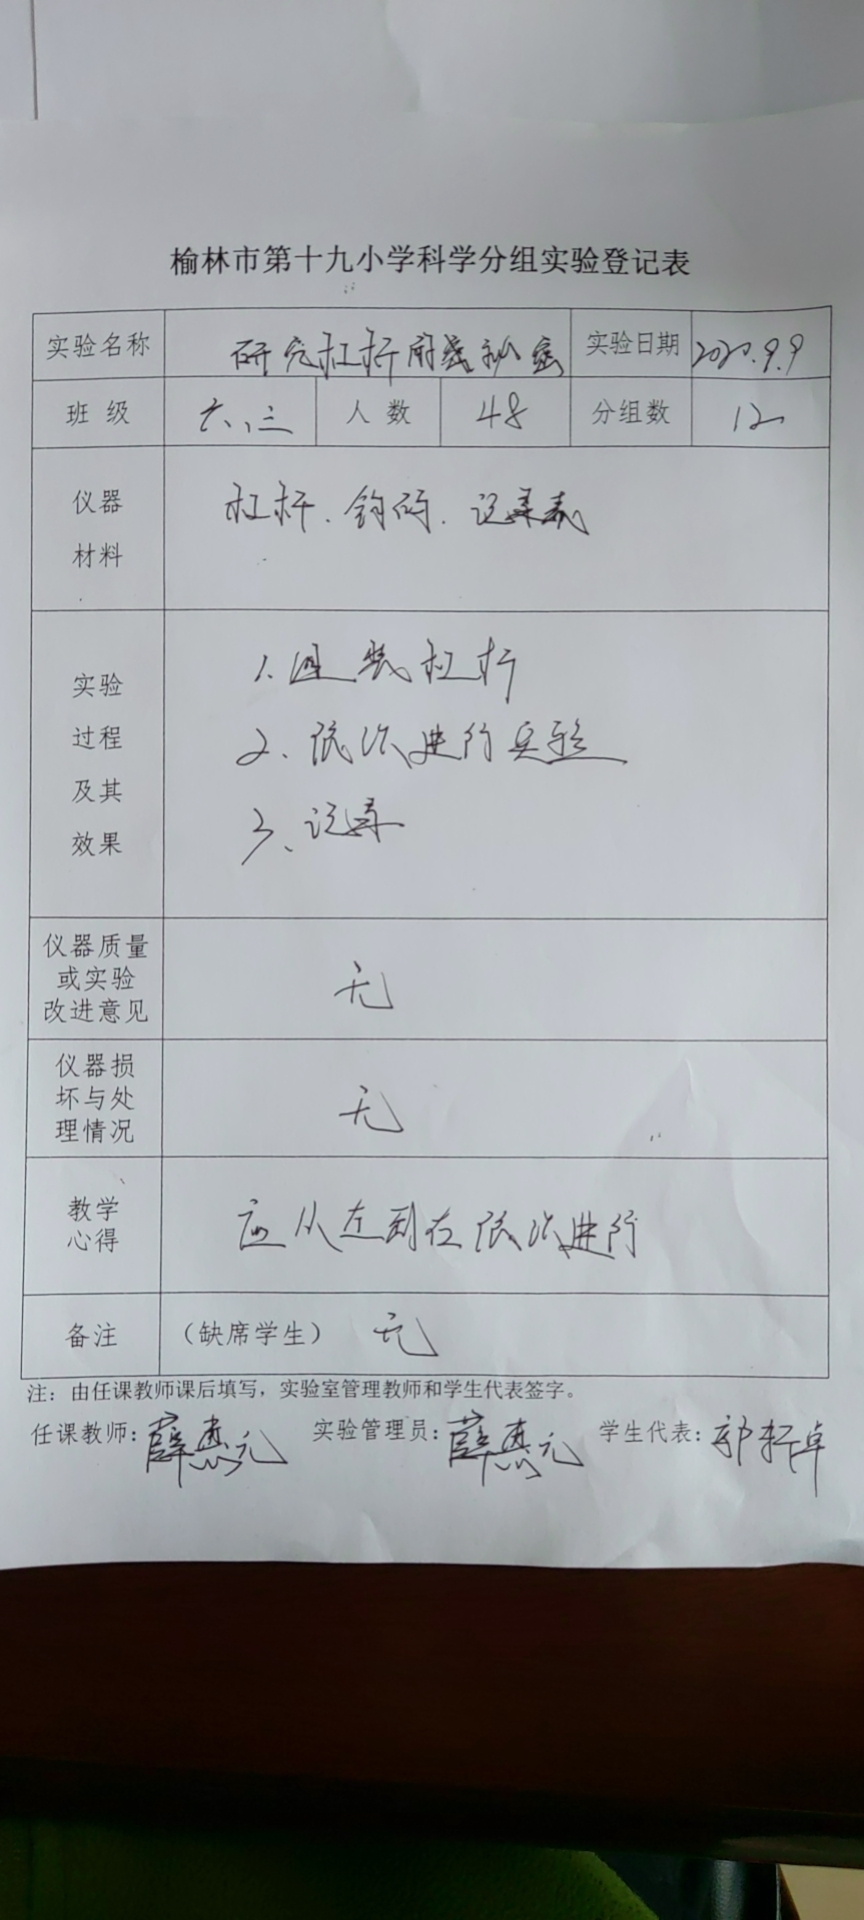 榆林市第十九小学科学分组实验登记表
实验名称 研究杠杆的秘密 实验日期 2020.9.9
班级 六、三 人数 48 分组数 12
仪器材料 杠杆、钩码、记录表
实验过程及其效果
1、组装杠杆
2、依次进行实验
3、记录
仪器质量
或实验
改进意见 无
仪器损
坏与处
理情况 无
教学
心得 应从左到右依次进行
备注 （缺席学生） 无
注：由任课教师课后填写，实验室管理教师和学生代表签字。
任课教师： 实验管理员： 学生代表：